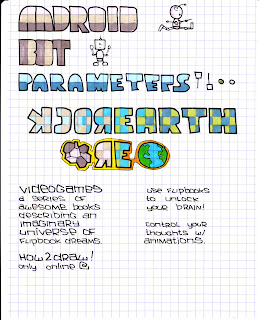 ANDROID
BOT
PARAMETERS
KCOREARTH
VIDEOGAMES
A SERIES OF
AWESOME BOOKS
DESCRIBING AN
IMAGINARY
UNIVERSE OF
FLIPBOOK DREAMS.
HOW2DRAW!
only online @
USE FLIPBOOKS
TO UNLOCK
YOUR BRAIN!
CONTROL YOUR
THOUGHTS W/
ANIMATIONS.